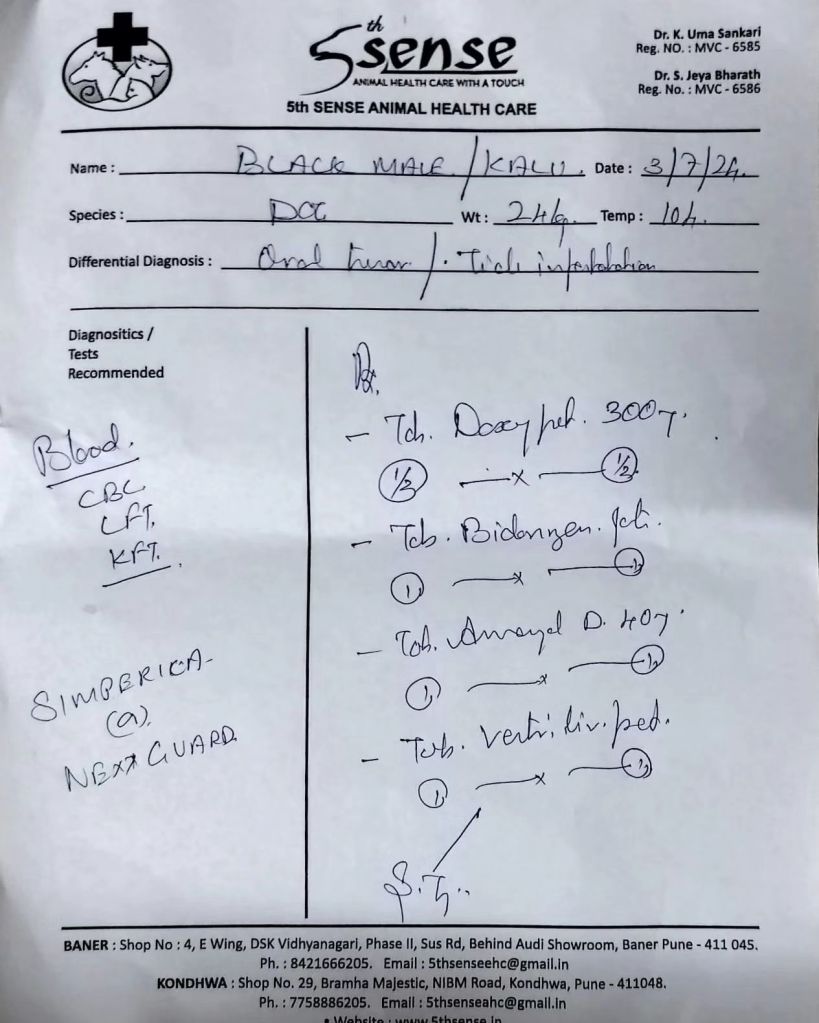 5th Sense
ANIMAL HEALTH CARE WITH A TOUCH
5th SENSE ANIMAL HEALTH CARE
Dr. K. Uma Sankari
Reg. NO. : MVC - 6585
Dr. S. Jeya Bharath
Reg. No. : MVC - 6586
Name : BLACK MALE / KALU. Date : 3/7/24.
Species : DOG Wt : 24kg. Temp : 104.
Differential Diagnosis : Oral tumor / Tick infestation
Diagnositics /
Tests
Recommended
Blood.
CBC
LFT.
KFT.
SIMPERICA
(a)
NEXX GUARD
Rx.
- Tab. Doxy pet. 300
1/2 — x — 1/2
- Tab.
1 — x — 1
- Tab. D. 40
1 — x — 1
- Tab. liv. ped.
1 — x — 1
BANER : Shop No : 4, E Wing, DSK Vidhyanagari, Phase II, Sus Rd, Behind Audi Showroom, Baner Pune - 411 045.
Ph. : 8421666205. Email : 5thsenseehc@gmail.in
KONDHWA : Shop No. 29, Bramha Majestic, NIBM Road, Kondhwa, Pune - 411048.
Ph. : 7758886205. Email : 5thsenseahc@gmail.in
• Website : www.5thsense.in